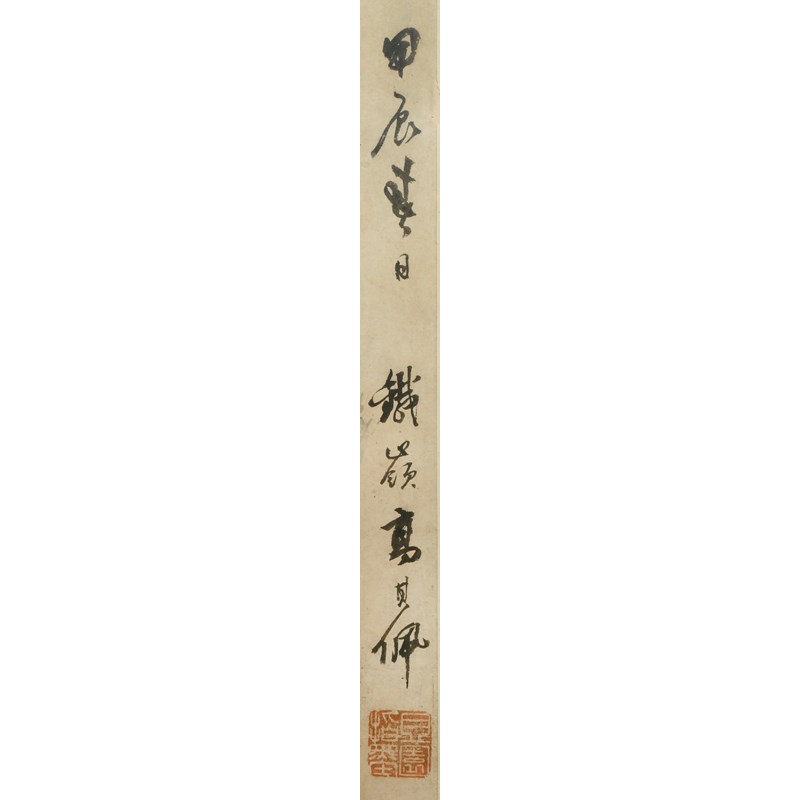 甲辰春日 鐵嶺高其佩